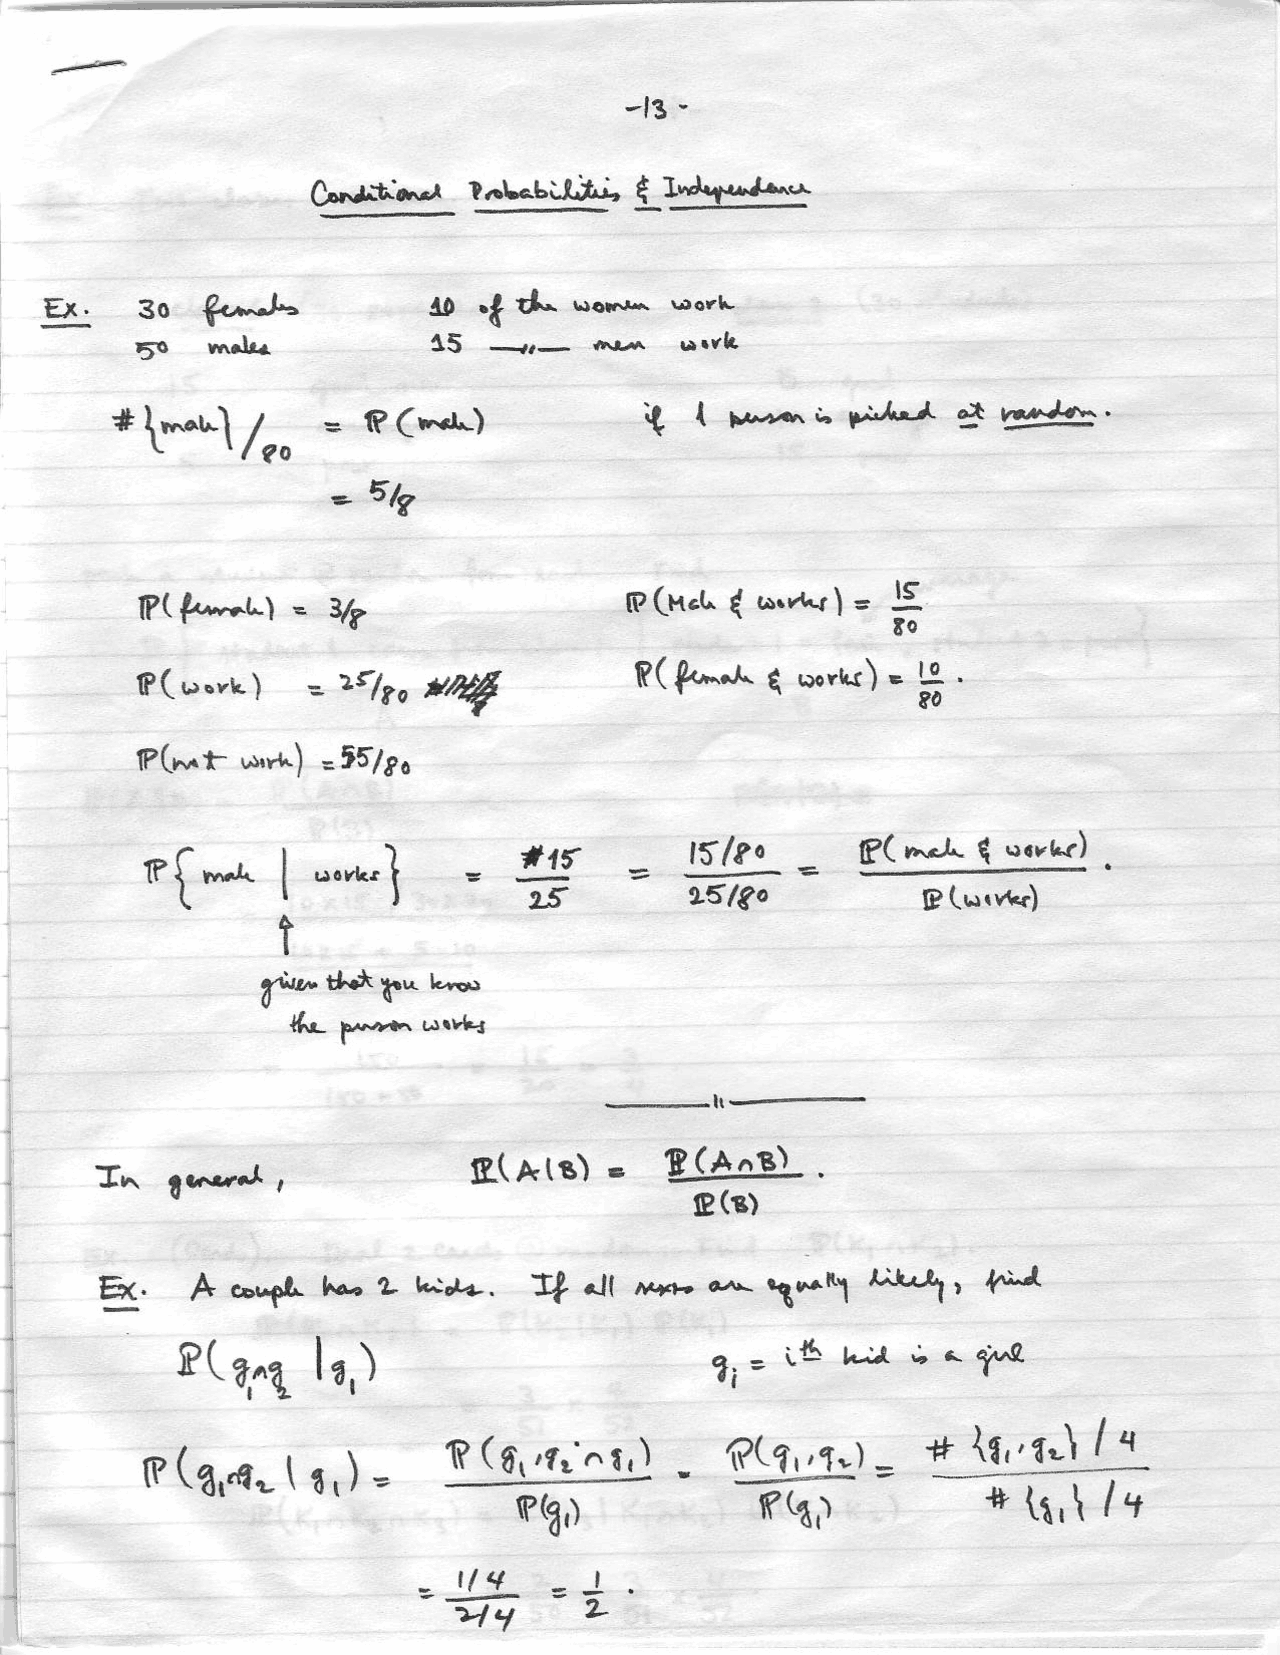 -13-
Conditional Probabilities & Independence
Ex. 30 females 10 of the women work
50 males 15 —"— men work
#{male}/80 = P(male) if 1 person is picked at random.
= 5/8
P(female) = 3/8 P(Male & works) = 15/80
P(work) = 25/80 P(female & works) = 10/80.
P(not work) = 55/80
P{male | works} = #15/25 = 15/80 / 25/80 = P(male & works)/P(works).
↑
given that you know
the person works
—"—
In general, P(A|B) = P(A∩B)/P(B).
Ex. A couple has 2 kids. If all sexes are equally likely, find
P(g₁∩g₂ | g₁) gᵢ = iᵗʰ kid is a girl
P(g₁∩g₂ | g₁) = P(g₁,g₂∩g₁)/P(g₁) = P(g₁,g₂)/P(g₁) = #{g₁,g₂}/4 / #{g₁}/4
= 1/4 / 2/4 = 1/2.